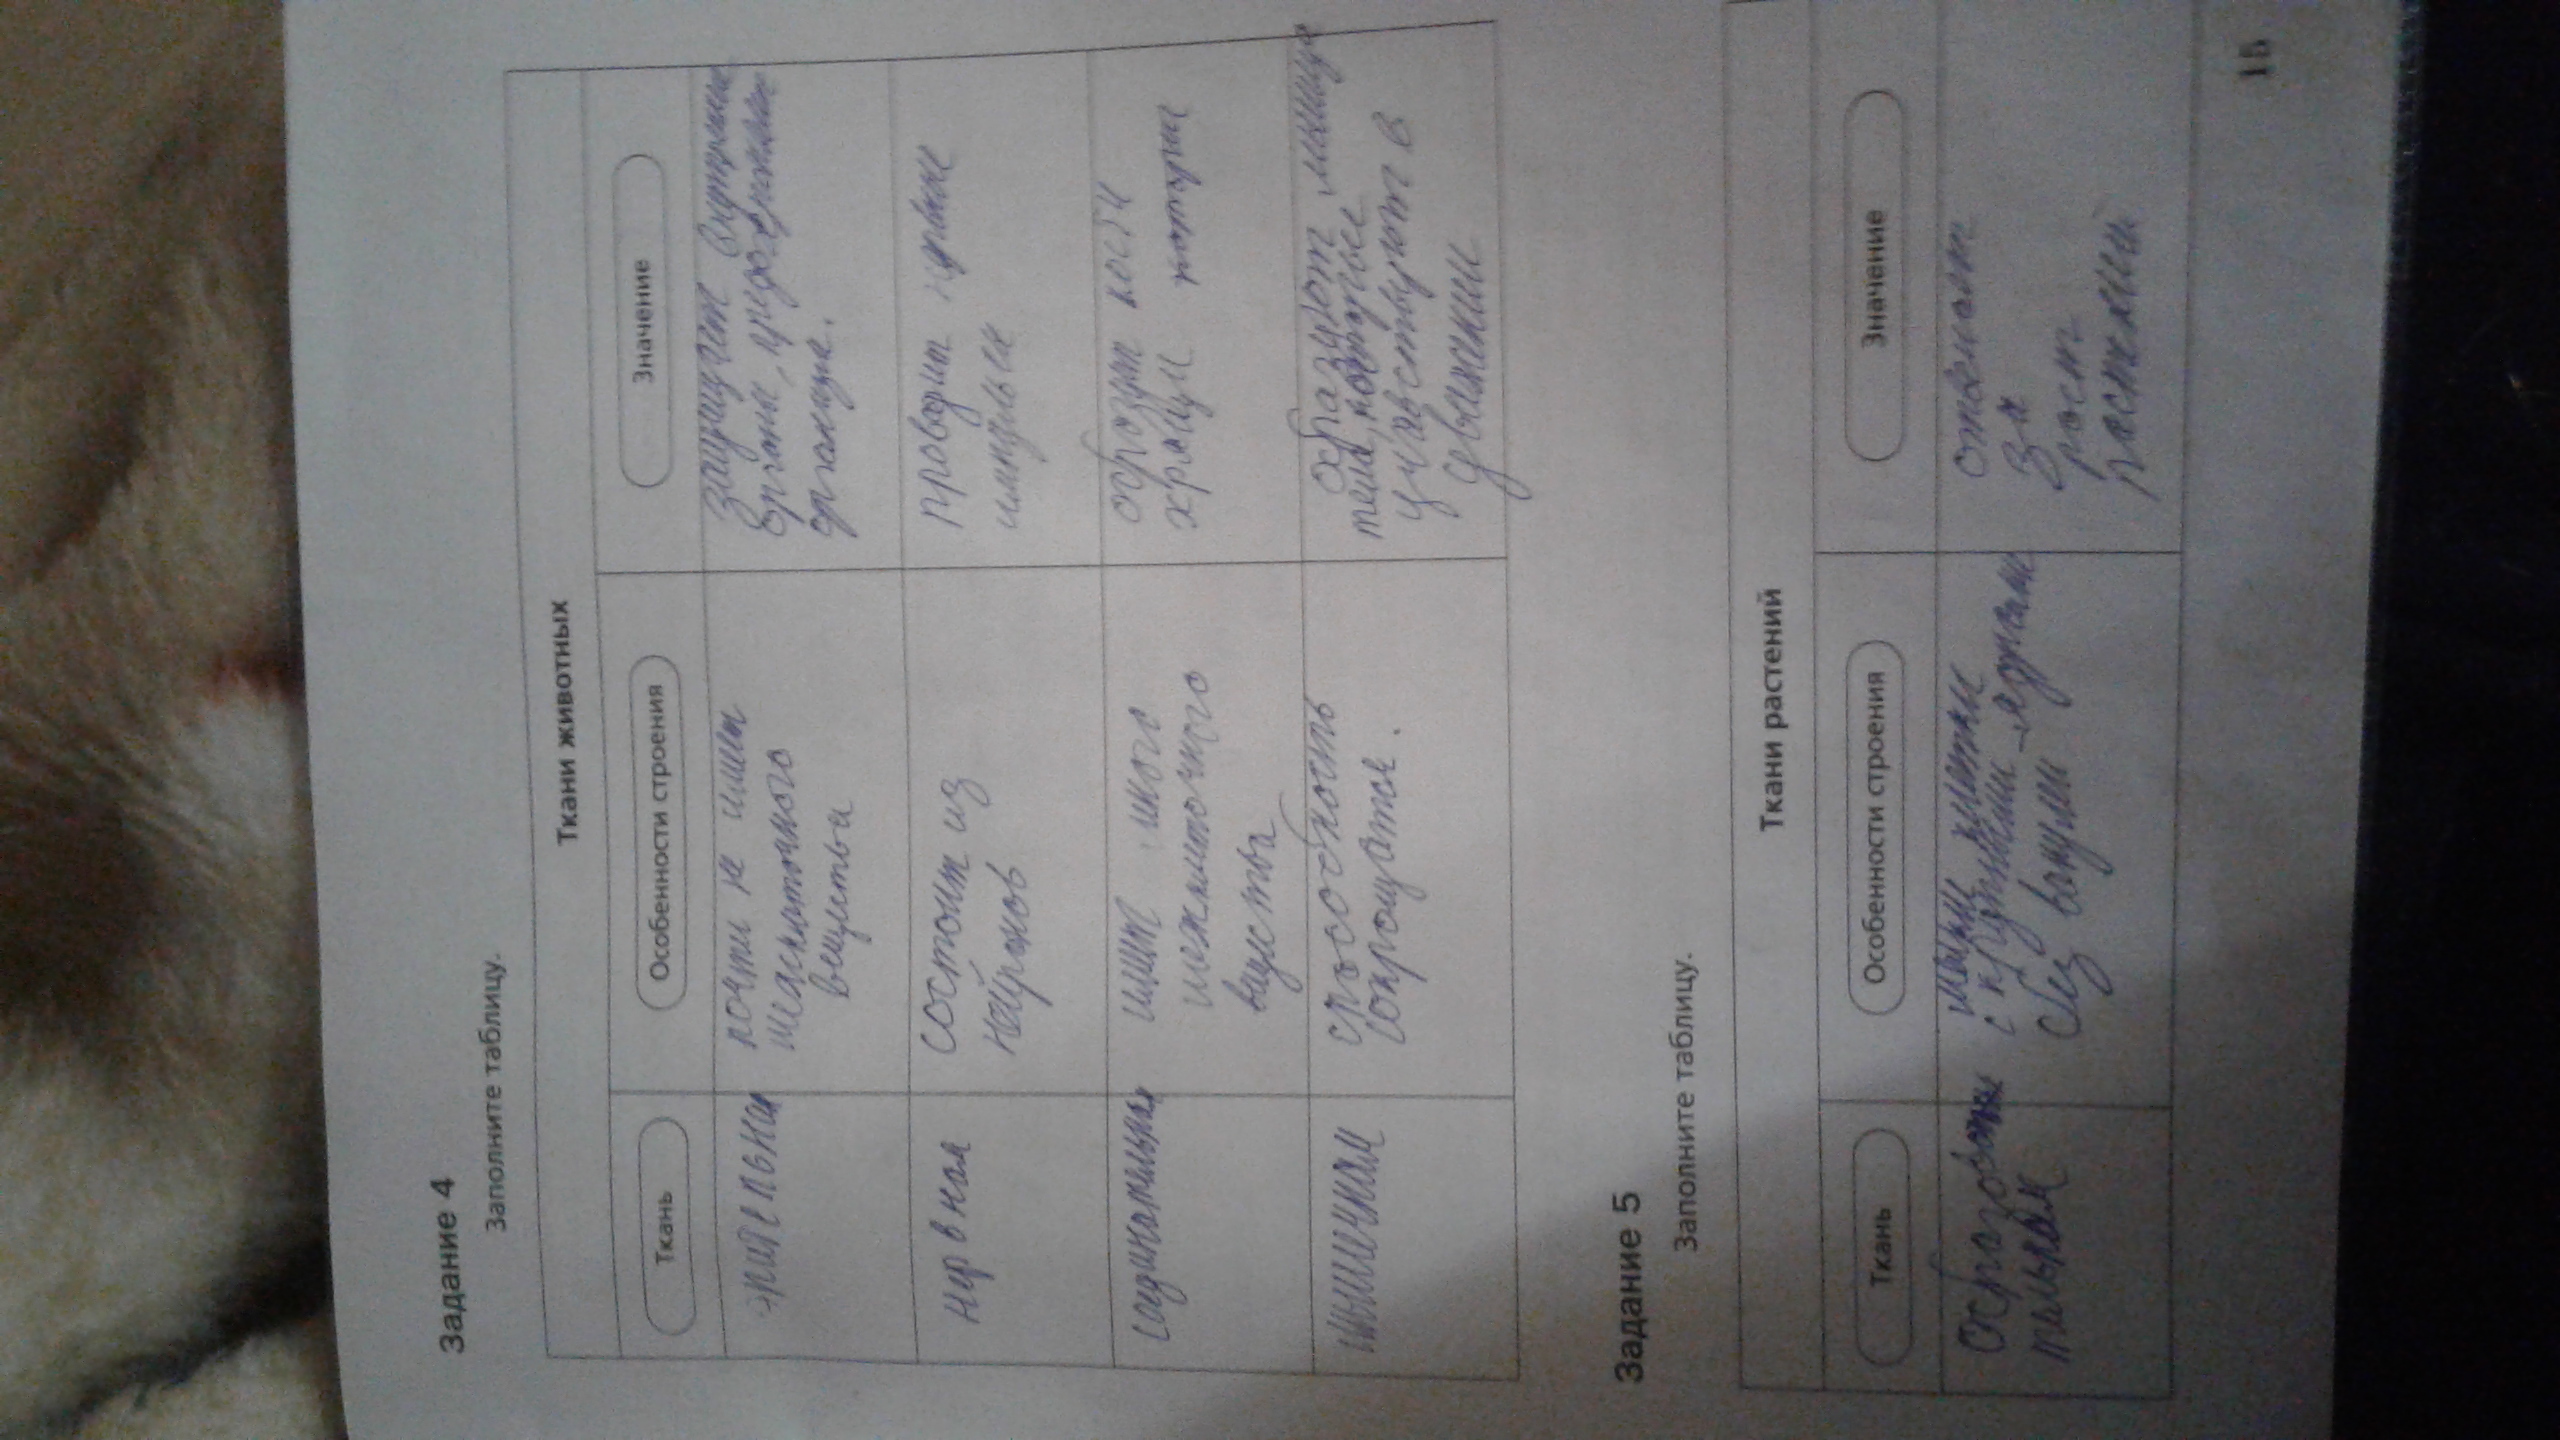 Задание 4
Заполните таблицу.
Ткани животных
Ткань
Особенности строения
Значение
почти не имеет
межклеточного
вещества
защищает внутренние
органы
нервная
состоит из
нейронов
проводит нервные
импульсы
соединительная
имеет много
межклеточного
вещества
образует кости
хрящи
мышечная
способность
сокращаться.
образует мышцы
тела, которые
участвуют в
движении
Задание 5
Заполните таблицу.
Ткани растений
Ткань
Особенности строения
Значение
образова
тельная
клетки
с крупными ядрами
без вакуоли
отвечает
за
рост
растений
15